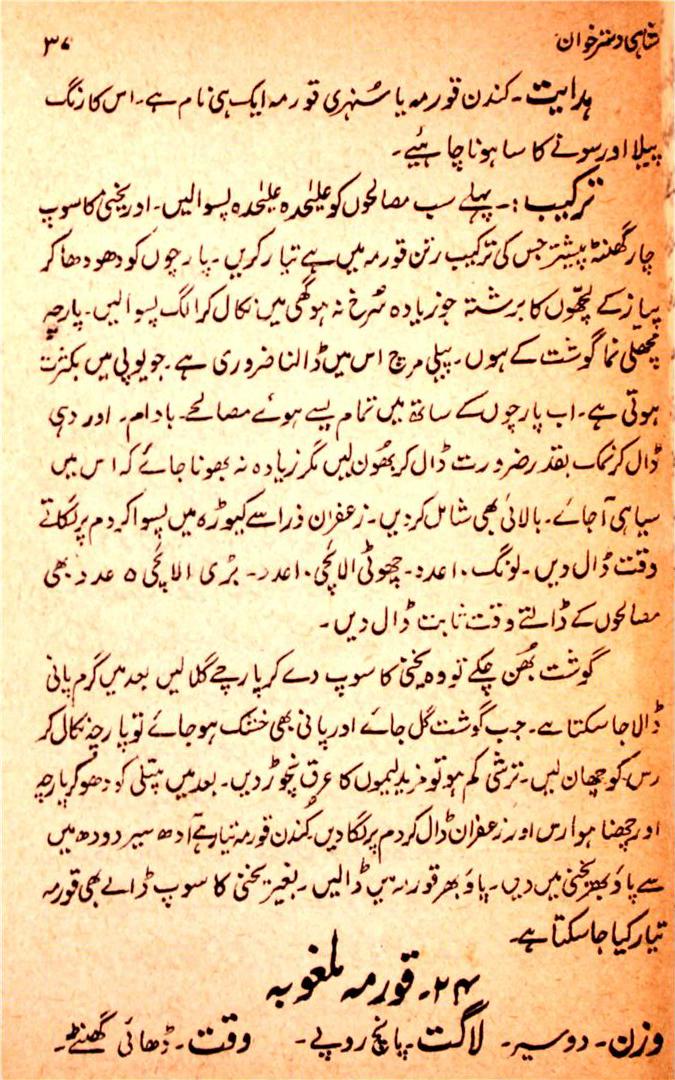 شاہی دسترخوان ۳۷
ہدایت۔ کندن قورمہ یا سُنہری قورمہ ایک ہی نام ہے۔ اس کا رنگ
پیلا اور سونے کا سا ہونا چاہیئے۔
ترکیب :۔ پہلے سب مصالحوں کو علیٰحدہ علیٰحدہ پسوالیں۔ اور یخنی کا سوپ
چار گھنٹہ پیشتر جس کی ترکیب رتن قورمہ میں ہے تیار کریں۔ پارچوں کو دھو دھا کر
پیاز کے لچھّوں کا برشتہ جو زیادہ سُرخ نہ ہو گھی میں نکال کر الگ پسوالیں۔ پارچہ
مچھلی نما گوشت کے ہوں۔ پیلی مرچ اس میں ڈالنا ضروری ہے۔ جو یوپی میں بکثرت
ہوتی ہے۔ اب پارچوں کے ساتھ میں تمام پسے ہوئے مصالحے۔ بادام۔ اور دہی
ڈال کر نمک بقدر ضرورت ڈال کر بھُون لیں مگر زیادہ نہ بھونا جائے کہ اس میں
سیاہی آجائے۔ بالائی بھی شامل کر دیں۔ زعفران ذرا سے کیوڑہ میں پسوا کر دم پر لگاتے
وقت ڈال دیں۔ لونگ ۱۰ عدد۔ چھوٹی الائچی ۱۰ عدد۔ بڑی الائچی ۵ عدد بھی
مصالحوں کے ڈالتے وقت ثابت ڈال دیں۔
گوشت بھُن چکے تو وہ یخنی کا سوپ دے کر پارچے گلالیں بعد میں گرم پانی
ڈالا جاسکتا ہے۔ جب گوشت گل جائے اور پانی بھی خشک ہو جائے تو پارچہ نکال کر
رس کو چھان لیں۔ ترشی کم ہو تو مزید لیموں کا عرق نچوڑ دیں۔ بعد میں پتیلی کو دھو کر پارچہ
اور چھنا ہوا رس اور زعفران ڈال کر دم پر لگا دیں کندن قورمہ تیار ہے آدھ سیر دودھ میں
سے پاؤ بھر یخنی میں دیں۔ پاؤ بھر قورمہ میں ڈالیں۔ بغیر یخنی کا سوپ ڈالے بھی قورمہ
تیار کیا جاسکتا ہے۔
۲۴۔ قورمہ ملغوبہ
وزن۔ دو سیر۔ لاگت۔ پانچ روپے۔ وقت۔ ڈھائی گھنٹے۔